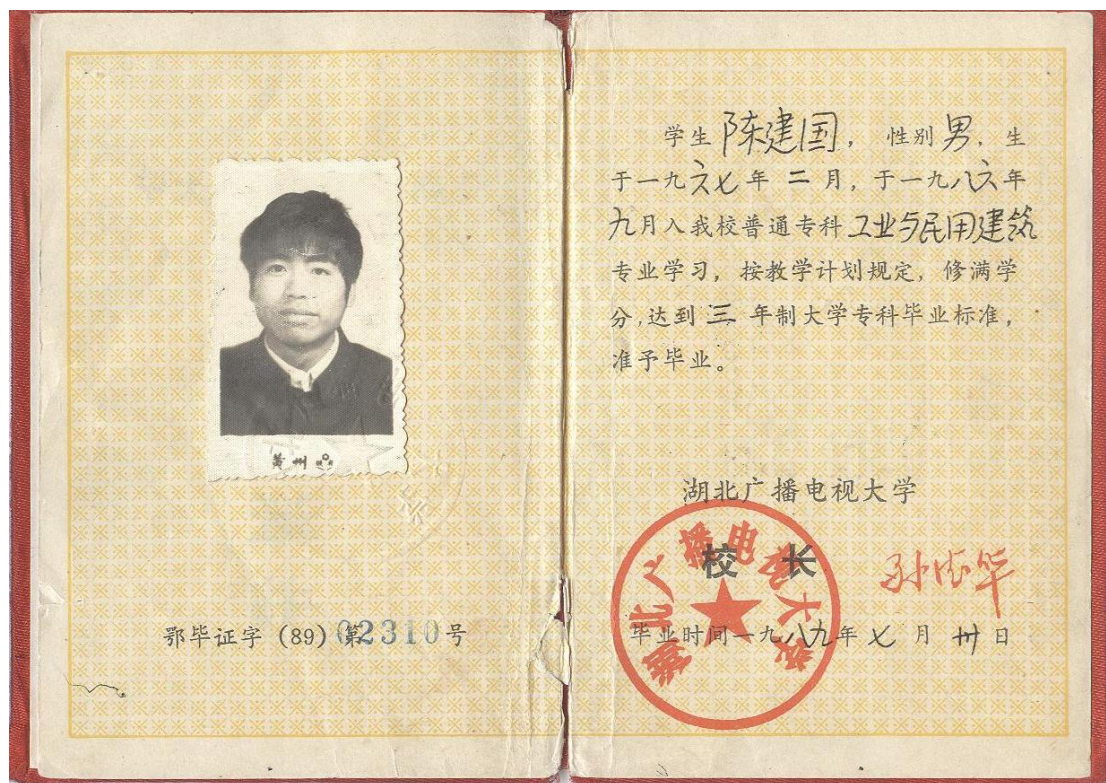 黄州
鄂毕证字 (89) 第02310号
学生陈建国，性别男，生
于一九六七年二月，于一九八六年
九月入我校普通专科工业与民用建筑
专业学习，按教学计划规定，修满学
分，达到三年制大学专科毕业标准，
准予毕业。
湖北广播电视大学
校长
湖北广播电视大学
毕业时间一九八九年七月卅日